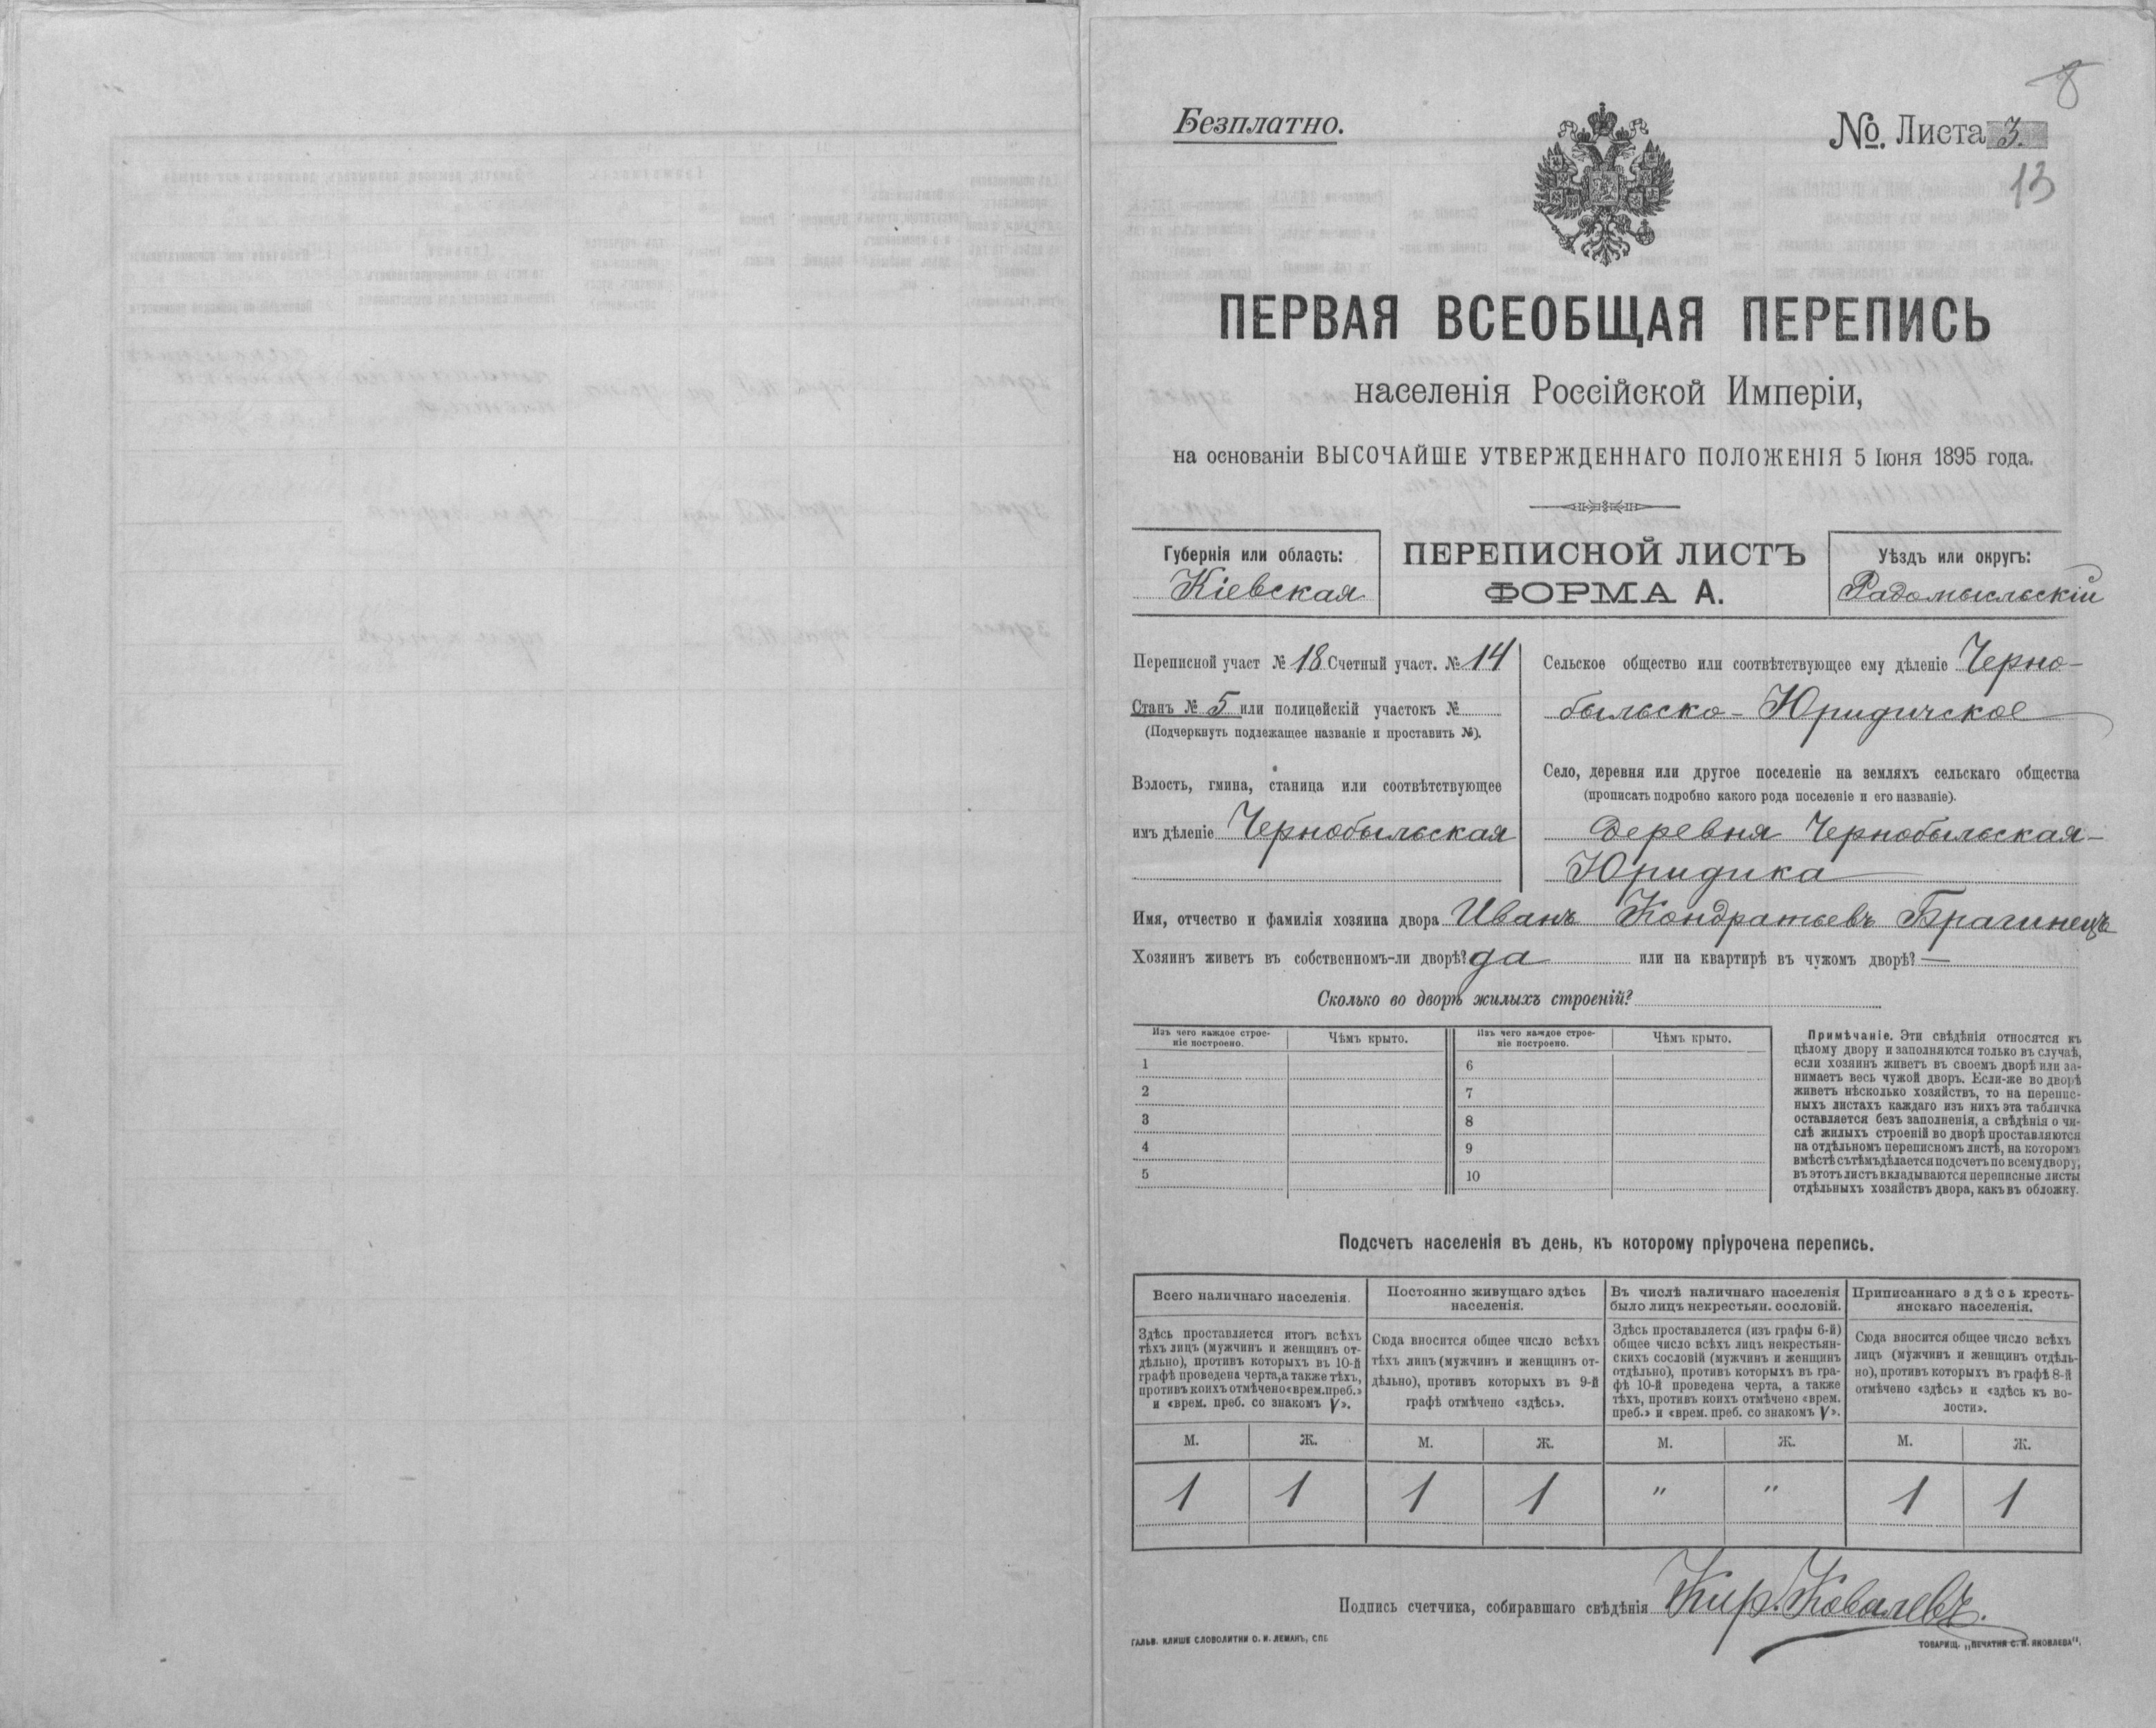 8
Безплатно.
№. Листа 3.
13
ПЕРВАЯ ВСЕОБЩАЯ ПЕРЕПИСЬ
населенія Россійской Имперіи,
на основаніи ВЫСОЧАЙШЕ УТВЕРЖДЕННАГО ПОЛОЖЕНІЯ 5 Іюня 1895 года.
Губернія или область:
Кіевская
ПЕРЕПИСНОЙ ЛИСТЪ
ФОРМА А.
Уѣздъ или округъ:
Радомысльскій
Переписной участ № 18 Счетный участ. № 14
Станъ № 5 или полицейскій участокъ №
(Подчеркнуть подлежащее названіе и проставить №).
Волость, гмина, станица или соотвѣтствующее
имъ дѣленіе Чернобыльская
Сельское общество или соотвѣтствующее ему дѣленіе Черно-
быльско-Юридичское
Село, деревня или другое поселеніе на земляхъ сельскаго общества
(прописать подробно какого рода поселеніе и его названіе).
Деревня Чернобыльская-
Юридика
Имя, отчество и фамилія хозяина двора Иванъ Кондратьевъ Брагинецъ
Хозяинъ живетъ въ собственномъ-ли дворѣ? да или на квартирѣ въ чужомъ дворѣ? —
Сколько во дворѣ жилыхъ строеній?
Изъ чего каждое строе-
ніе построено.
Чѣмъ крыто.
Изъ чего каждое строе-
ніе построено.
Чѣмъ крыто.
1 6
2 7
3 8
4 9
5 10
Примѣчаніе. Эти свѣдѣнія относятся къ
цѣлому двору и заполняются только въ случаѣ,
если хозяинъ живетъ въ своемъ дворѣ или за-
нимаетъ весь чужой дворъ. Если-же во дворѣ
живетъ нѣсколько хозяйствъ, то на перепис-
ныхъ листахъ каждаго изъ нихъ эта табличка
оставляется безъ заполненія, а свѣдѣнія о чи-
слѣ жилыхъ строеній во дворѣ проставляются
на отдѣльномъ переписномъ листѣ, на которомъ
вмѣстѣ съ тѣмъ дѣлается подсчетъ по всему двору;
въ этотъ листъ вкладываются переписные листы
отдѣльныхъ хозяйствъ двора, какъ въ обложку.
Подсчетъ населенія въ день, къ которому пріурочена перепись.
Всего наличнаго населенія.
Здѣсь проставляется итогъ всѣхъ
тѣхъ лицъ (мужчинъ и женщинъ от-
дѣльно), противъ которыхъ въ 10-й
графѣ проведена черта, а также тѣхъ,
противъ коихъ отмѣчено «врем. преб.»
и «врем. преб. со знакомъ V».
Постоянно живущаго здѣсь
населенія.
Сюда вносится общее число всѣхъ
тѣхъ лицъ (мужчинъ и женщинъ от-
дѣльно), противъ которыхъ въ 9-й
графѣ отмѣчено «здѣсь».
Въ числѣ наличнаго населенія
было лицъ некрестьян. сословій.
Здѣсь проставляется (изъ графы 6-й)
общее число всѣхъ лицъ некрестьян-
скихъ сословій (мужчинъ и женщинъ
отдѣльно), противъ которыхъ въ гра-
фѣ 10-й проведена черта, а также
тѣхъ, противъ коихъ отмѣчено «врем.
преб.» и «врем. преб. со знакомъ V».
Приписаннаго здѣсь кресть-
янскаго населенія.
Сюда вносится общее число всѣхъ
лицъ (мужчинъ и женщинъ отдѣль-
но), противъ которыхъ въ графѣ 8-й
отмѣчено «здѣсь» и «здѣсь къ во-
лости».
М. Ж. М. Ж. М. Ж. М. Ж.
1 1 1 1 " " 1 1
Подпись счетчика, собиравшаго свѣдѣнія Кир. Ковалевъ.
ГАЛЬВ. КЛИШЕ СЛОВОЛИТНИ О. И. ЛЕМАНЪ, СПБ
ТОВАРИЩ. „ПЕЧАТНЯ С. П. ЯКОВЛЕВА".